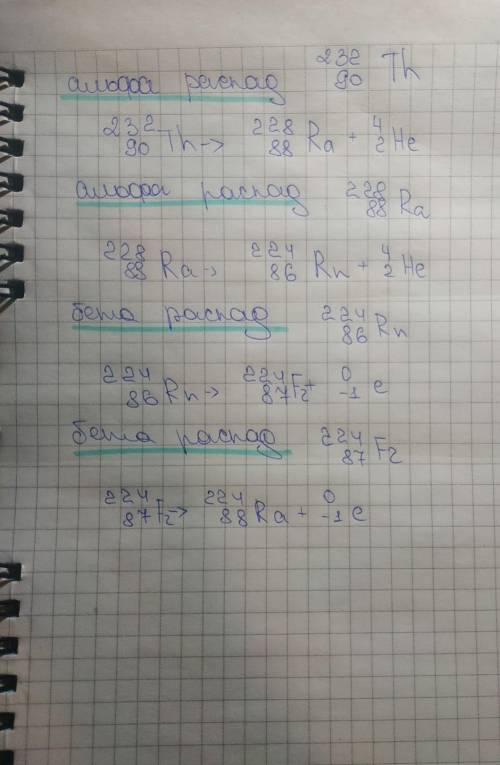 альфа распад ²³²₉₀Th
²³²₉₀Th → ²²⁸₈₈Ra + ⁴₂He
альфа распад ²²⁸₈₈Ra
²²⁸₈₈Ra → ²²⁴₈₆Rn + ⁴₂He
бета распад ²²⁴₈₆Rn
²²⁴₈₆Rn → ²²⁴₈₇Fr + ⁰₋₁e
бета распад ²²⁴₈₇Fr
²²⁴₈₇Fr → ²²⁴₈₈Ra + ⁰₋₁e